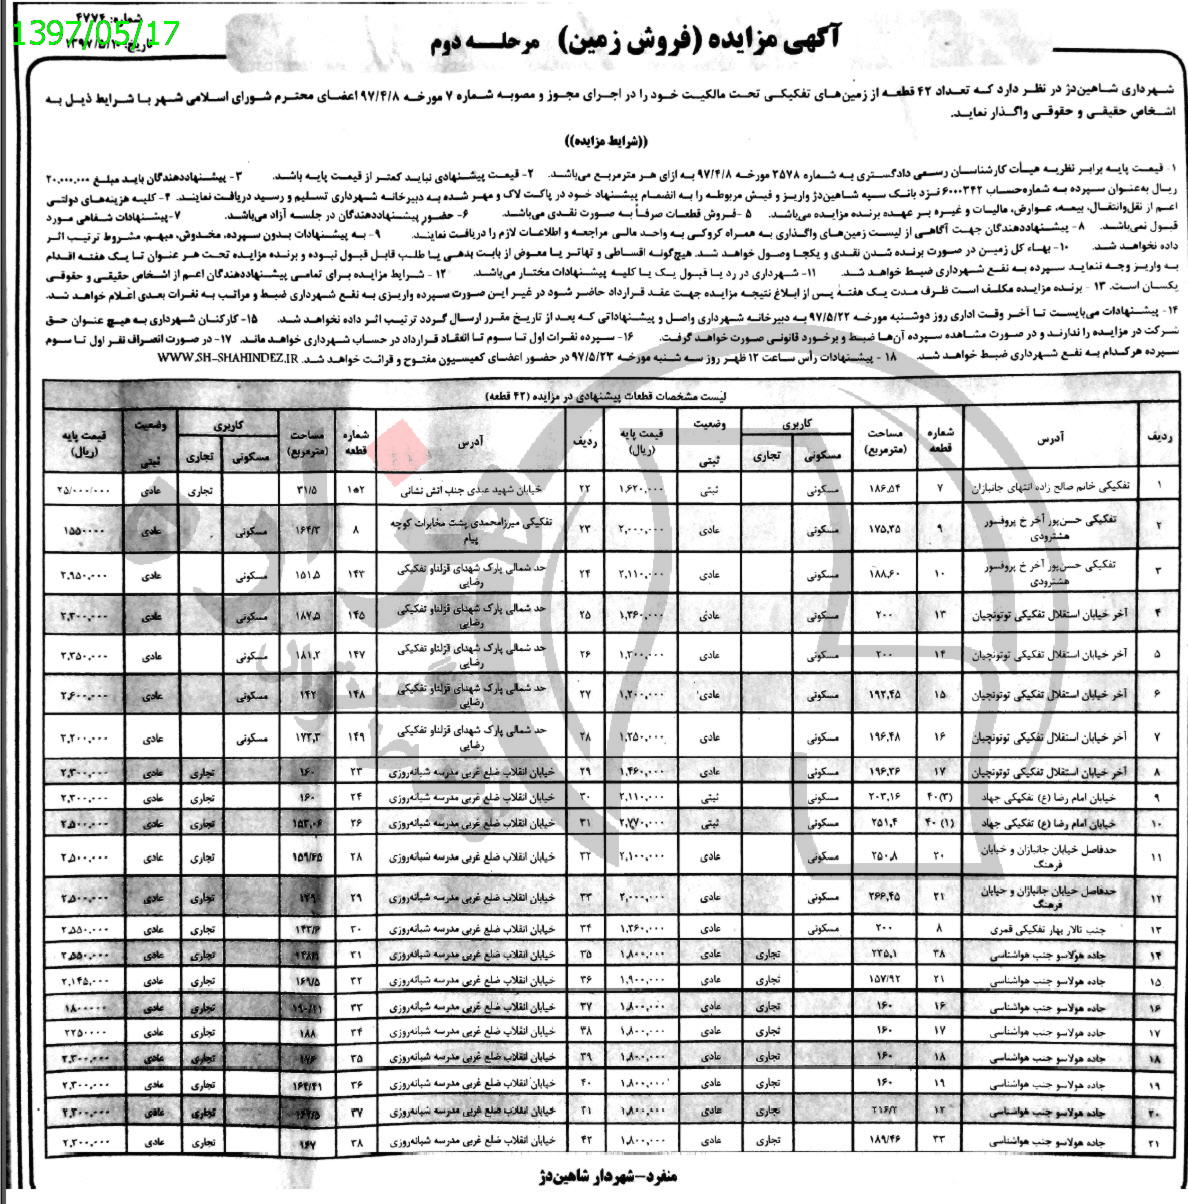 شماره: ۴۷۷۴
1397/05/17
تاریخ: ۱۳۹۷/۵/۱۰
آگهی مزایده (فروش زمین) مرحله دوم
شهرداری شاهین‌دژ در نظر دارد که تعداد ۴۲ قطعه از زمین‌های تفکیکی تحت مالکیت خود را در اجرای مجوز و مصوبه شماره ۷ مورخه ۹۷/۴/۸ اعضای محترم شورای اسلامی شهر با شرایط ذیل به
اشخاص حقیقی و حقوقی واگذار نماید.
((شرایط مزایده))
۱- قیمت پایه برابر نظریه هیأت کارشناسان رسمی دادگستری به شماره ۲۵۷۸ مورخه ۹۷/۴/۸ به ازای هر مترمربع می‌باشد. ۲- قیمت پیشنهادی نباید کمتر از قیمت پایه باشد. ۳- پیشنهاددهندگان باید مبلغ ۲۰،۰۰۰،۰۰۰
ریال به‌عنوان سپرده به شماره‌حساب ۶۰۰۰۳۴۲ نزد بانک سپه شاهین‌دژ واریز و فیش مربوطه را به انضمام پیشنهاد خود در پاکت لاک و مهر شده به دبیرخانه شهرداری تسلیم و رسید دریافت نمایند. ۴- کلیه هزینه‌های دولتی
اعم از نقل‌وانتقال، بیمه، عوارض، مالیات و غیره بر عهده برنده مزایده می‌باشد. ۵- فروش قطعات صرفاً به صورت نقدی می‌باشد. ۶- حضور پیشنهاددهندگان در جلسه آزاد می‌باشد. ۷- پیشنهادات شفاهی مورد
قبول نمی‌باشد. ۸- پیشنهاددهندگان جهت آگاهی از لیست زمین‌های واگذاری به همراه کروکی به واحد مالی مراجعه و اطلاعات لازم را دریافت نمایند. ۹- به پیشنهادات بدون سپرده، مخدوش، مبهم، مشروط ترتیب اثر
داده نخواهد شد. ۱۰- بهاء کل زمین در صورت برنده شدن نقدی و یکجا وصول خواهد شد. هیچ‌گونه اقساطی و تهاتر یا معوض از بابت بدهی یا طلب قابل قبول نبوده و برنده مزایده تحت هر عنوان تا یک هفته اقدام
به واریز وجه ننماید سپرده به نفع شهرداری ضبط خواهد شد. ۱۱- شهرداری در رد یا قبول یک یا کلیه پیشنهادات مختار می‌باشد. ۱۲- شرایط مزایده برای تمامی پیشنهاددهندگان اعم از اشخاص حقیقی و حقوقی
یکسان است. ۱۳- برنده مزایده مکلف است ظرف مدت یک هفته پس از ابلاغ نتیجه مزایده جهت عقد قرارداد حاضر شود در غیر این صورت سپرده واریزی به نفع شهرداری ضبط و مراتب به نفرات بعدی اعلام خواهد شد.
۱۴- پیشنهادات می‌بایست تا آخر وقت اداری روز دوشنبه مورخه ۹۷/۵/۲۲ به دبیرخانه شهرداری واصل و پیشنهاداتی که بعد از تاریخ مقرر ارسال گردد ترتیب اثر داده نخواهد شد. ۱۵- کارکنان شهرداری به هیچ عنوان حق
شرکت در مزایده را ندارند و در صورت مشاهده سپرده آن‌ها ضبط و برخورد قانونی صورت خواهد گرفت. ۱۶- سپرده نفرات اول تا سوم تا انعقاد قرارداد در حساب شهرداری خواهد ماند. ۱۷- در صورت انصراف نفر اول تا سوم
سپرده هرکدام به نفع شهرداری ضبط خواهد شد. ۱۸- پیشنهادات رأس ساعت ۱۲ ظهر روز سه شنبه مورخه ۹۷/۵/۲۳ در حضور اعضای کمیسیون مفتوح و قرائت خواهد شد. WWW.SH-SHAHINDEZ.IR
لیست مشخصات قطعات پیشنهادی در مزایده (۴۲ قطعه)
ردیف آدرس شماره قطعه مساحت (مترمربع) کاربری مسکونی تجاری وضعیت ثبتی قیمت پایه (ریال) ردیف آدرس شماره قطعه مساحت (مترمربع) کاربری مسکونی تجاری وضعیت ثبتی قیمت پایه (ریال)
۱ تفکیکی خانم صالح زاده انتهای جانبازان ۷ ۱۸۶.۵۴ مسکونی ثبتی ۱،۶۲۰،۰۰۰ ۲۲ خیابان شهید عبدی جنب آتش نشانی ۱۰۲ ۳۱/۵ تجاری عادی ۲۵/۰۰۰/۰۰۰
۲ تفکیکی حسن‌پور آخر خ پروفسور هشترودی ۹ ۱۷۵.۳۵ مسکونی عادی ۲،۰۰۰،۰۰۰ ۲۳ تفکیکی میرزامحمدی پشت مخابرات کوچه پیام ۸ ۱۶۴/۳ مسکونی عادی ۱۵۵۰۰۰۰
۳ تفکیکی حسن‌پور آخر خ پروفسور هشترودی ۱۰ ۱۸۸.۶۰ مسکونی عادی ۲،۱۱۰،۰۰۰ ۲۴ حد شمالی پارک شهدای قزلناو تفکیکی رضایی ۱۴۳ ۱۵۱.۵ مسکونی عادی ۲،۹۵۰،۰۰۰
۴ آخر خیابان استقلال تفکیکی توتونچیان ۱۳ ۲۰۰ مسکونی عادی ۱،۳۶۰،۰۰۰ ۲۵ حد شمالی پارک شهدای قزلناو تفکیکی رضایی ۱۴۵ ۱۸۷.۵ مسکونی عادی ۲،۳۰۰،۰۰۰
۵ آخر خیابان استقلال تفکیکی توتونچیان ۱۴ ۲۰۰ مسکونی عادی ۱،۳۰۰،۰۰۰ ۲۶ حد شمالی پارک شهدای قزلناو تفکیکی رضایی ۱۴۷ ۱۸۱.۲ مسکونی عادی ۲،۳۵۰،۰۰۰
۶ آخر خیابان استقلال تفکیکی توتونچیان ۱۵ ۱۹۲.۴۵ مسکونی عادی ۱،۲۰۰،۰۰۰ ۲۷ حد شمالی پارک شهدای قزلناو تفکیکی رضایی ۱۴۸ ۱۴۲ مسکونی عادی ۲،۶۰۰،۰۰۰
۷ آخر خیابان استقلال تفکیکی توتونچیان ۱۶ ۱۹۶.۴۸ مسکونی عادی ۱،۲۵۰،۰۰۰ ۲۸ حد شمالی پارک شهدای قزلناو تفکیکی رضایی ۱۴۹ ۱۷۳.۳ مسکونی عادی ۲،۲۰۰،۰۰۰
۸ آخر خیابان استقلال تفکیکی توتونچیان ۱۷ ۱۹۶.۳۶ مسکونی عادی ۱،۴۶۰،۰۰۰ ۲۹ خیابان انقلاب ضلع غربی مدرسه شبانه‌روزی ۲۳ ۱۶۰ تجاری عادی ۲،۳۰۰،۰۰۰
۹ خیابان امام رضا (ع) تفکیکی جهاد ۴۰(۳) ۲۰۳.۱۶ مسکونی ثبتی ۲،۱۱۰،۰۰۰ ۳۰ خیابان انقلاب ضلع غربی مدرسه شبانه‌روزی ۲۴ ۱۶۰ تجاری عادی ۲،۳۰۰،۰۰۰
۱۰ خیابان امام رضا (ع) تفکیکی جهاد ۴۰ (۱) ۲۵۱.۴ مسکونی ثبتی ۲،۷۷۰،۰۰۰ ۳۱ خیابان انقلاب ضلع غربی مدرسه شبانه‌روزی ۲۶ ۱۵۳.۰۶ تجاری عادی ۲،۵۰۰،۰۰۰
۱۱ حدفاصل خیابان جانبازان و خیابان فرهنگ ۲۰ ۲۵۰.۸ مسکونی عادی ۲،۱۰۰،۰۰۰ ۳۲ خیابان انقلاب ضلع غربی مدرسه شبانه‌روزی ۲۸ ۱۵۹/۶۵ تجاری عادی ۲،۵۰۰،۰۰۰
۱۲ حدفاصل خیابان جانبازان و خیابان فرهنگ ۲۱ ۲۶۶.۴۵ مسکونی عادی ۲،۰۰۰،۰۰۰ ۳۳ خیابان انقلاب ضلع غربی مدرسه شبانه‌روزی ۲۹ ۱۴۹ تجاری عادی ۲،۵۰۰،۰۰۰
۱۳ جنب تالار بهار تفکیکی قمری ۸ ۲۰۰ مسکونی عادی ۱،۳۶۰،۰۰۰ ۳۴ خیابان انقلاب ضلع غربی مدرسه شبانه‌روزی ۳۰ ۱۴۳/۶ تجاری عادی ۲،۵۵۰،۰۰۰
۱۴ جاده هولاسو جنب هواشناسی ۳۸ ۲۲۵.۱ تجاری عادی ۱،۸۰۰،۰۰۰ ۳۵ خیابان انقلاب ضلع غربی مدرسه شبانه‌روزی ۳۱ تجاری عادی ۲،۵۵۰،۰۰۰
۱۵ جاده هولاسو جنب هواشناسی ۲۱ ۱۵۷/۹۲ تجاری عادی ۱،۹۰۰،۰۰۰ ۳۶ خیابان انقلاب ضلع غربی مدرسه شبانه‌روزی ۳۲ ۱۶۹/۵ تجاری عادی ۲،۱۴۵،۰۰۰
۱۶ جاده هولاسو جنب هواشناسی ۱۶ ۱۶۰ تجاری عادی ۱،۸۰۰،۰۰۰ ۳۷ خیابان انقلاب ضلع غربی مدرسه شبانه‌روزی ۳۳ ۱۹۰/۲۱ تجاری عادی ۱۸۰۰۰۰۰
۱۷ جاده هولاسو جنب هواشناسی ۱۷ ۱۶۰ تجاری عادی ۱،۸۰۰،۰۰۰ ۳۸ خیابان انقلاب ضلع غربی مدرسه شبانه‌روزی ۳۴ ۱۸۸ تجاری عادی ۲۲۵۰۰۰۰
۱۸ جاده هولاسو جنب هواشناسی ۱۸ ۱۶۰ تجاری عادی ۱،۸۰۰،۰۰۰ ۳۹ خیابان انقلاب ضلع غربی مدرسه شبانه‌روزی ۳۵ ۱۷۶ تجاری عادی ۲،۳۰۰،۰۰۰
۱۹ جاده هولاسو جنب هواشناسی ۱۹ ۱۶۰ تجاری عادی ۱،۸۰۰،۰۰۰ ۴۰ خیابان انقلاب ضلع غربی مدرسه شبانه‌روزی ۳۶ ۱۶۴/۴۱ تجاری عادی ۲،۳۰۰،۰۰۰
۲۰ جاده هولاسو جنب هواشناسی ۱۲ ۲۱۶/۲ تجاری عادی ۱،۸۰۰،۰۰۰ ۴۱ خیابان انقلاب ضلع غربی مدرسه شبانه‌روزی ۳۷ تجاری عادی ۲،۳۰۰،۰۰۰
۲۱ جاده هولاسو جنب هواشناسی ۳۳ ۱۸۹/۴۶ تجاری عادی ۱،۸۰۰،۰۰۰ ۴۲ خیابان انقلاب ضلع غربی مدرسه شبانه‌روزی ۳۸ ۹۶۷ تجاری عادی ۲،۳۰۰،۰۰۰
منفرد-شهردار شاهین‌دژ